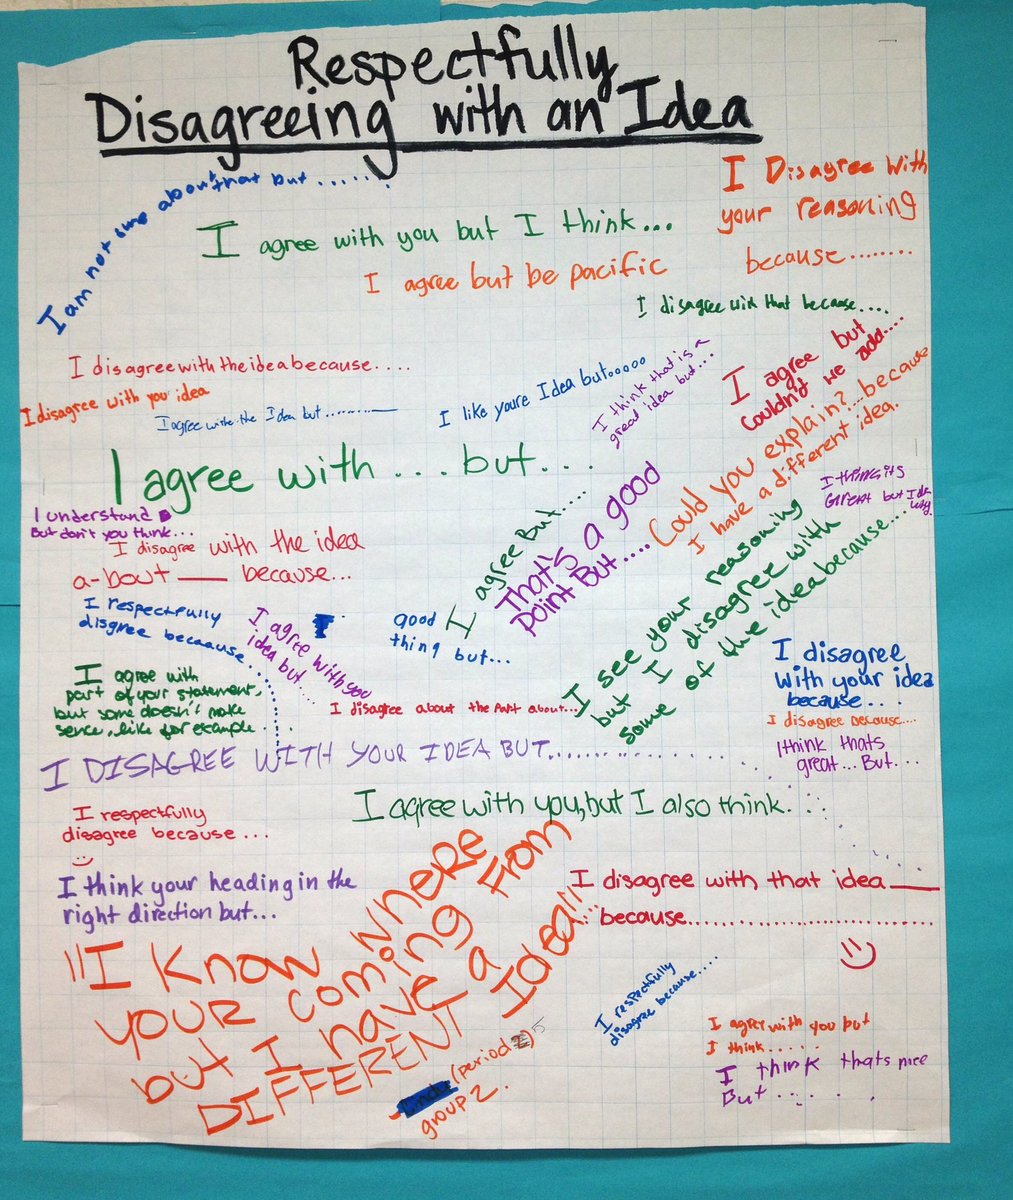 Respectfully
Disagreeing with an Idea
I am not sure about that but ......
I Disagree with
your reasoning
because........
I agree with you but I think...
I agree but be pacific
I disagree with that because....
I disagree with the idea because....
I disagree with you idea
I agree withe the Idea but
I like youre Idea but.....
I think that is a
great idea but...
I agree but
couldn't we add....
I agree with... but...
Could you explain?...because
I have a different idea.
I think its
Great but I
I understand
But don't you think...
I disagree with the idea
a-bout ___ because...
I agree But....
That's a good
Point But....
I see your reasoning
but I disagree with
some of the idea because...
I respectfully
disgree becaause...
I agree with you
idea but....
good
thing but...
I disagree
with your idea
because...
I agree with
part of your statement,
but some doesn't make
sence, like for example
I disagree about the part about...
I disagree because....
I think thats
great... But....
I DISAGREE WITH YOUR IDEA BUT...........
I agree with you, but I also think...
I respectfully
disagree because...
I think your heading in the
right direction but...
I disagree with that idea ___
because..............................
"I Know WHERE
YOUR COMING FROM
but I HAVE A
DIFFERENT Idea!!"
(period 5)
group 2.
I respectfully
disagree because....
I agree with you but
I think.....
I think thats nice
But.....